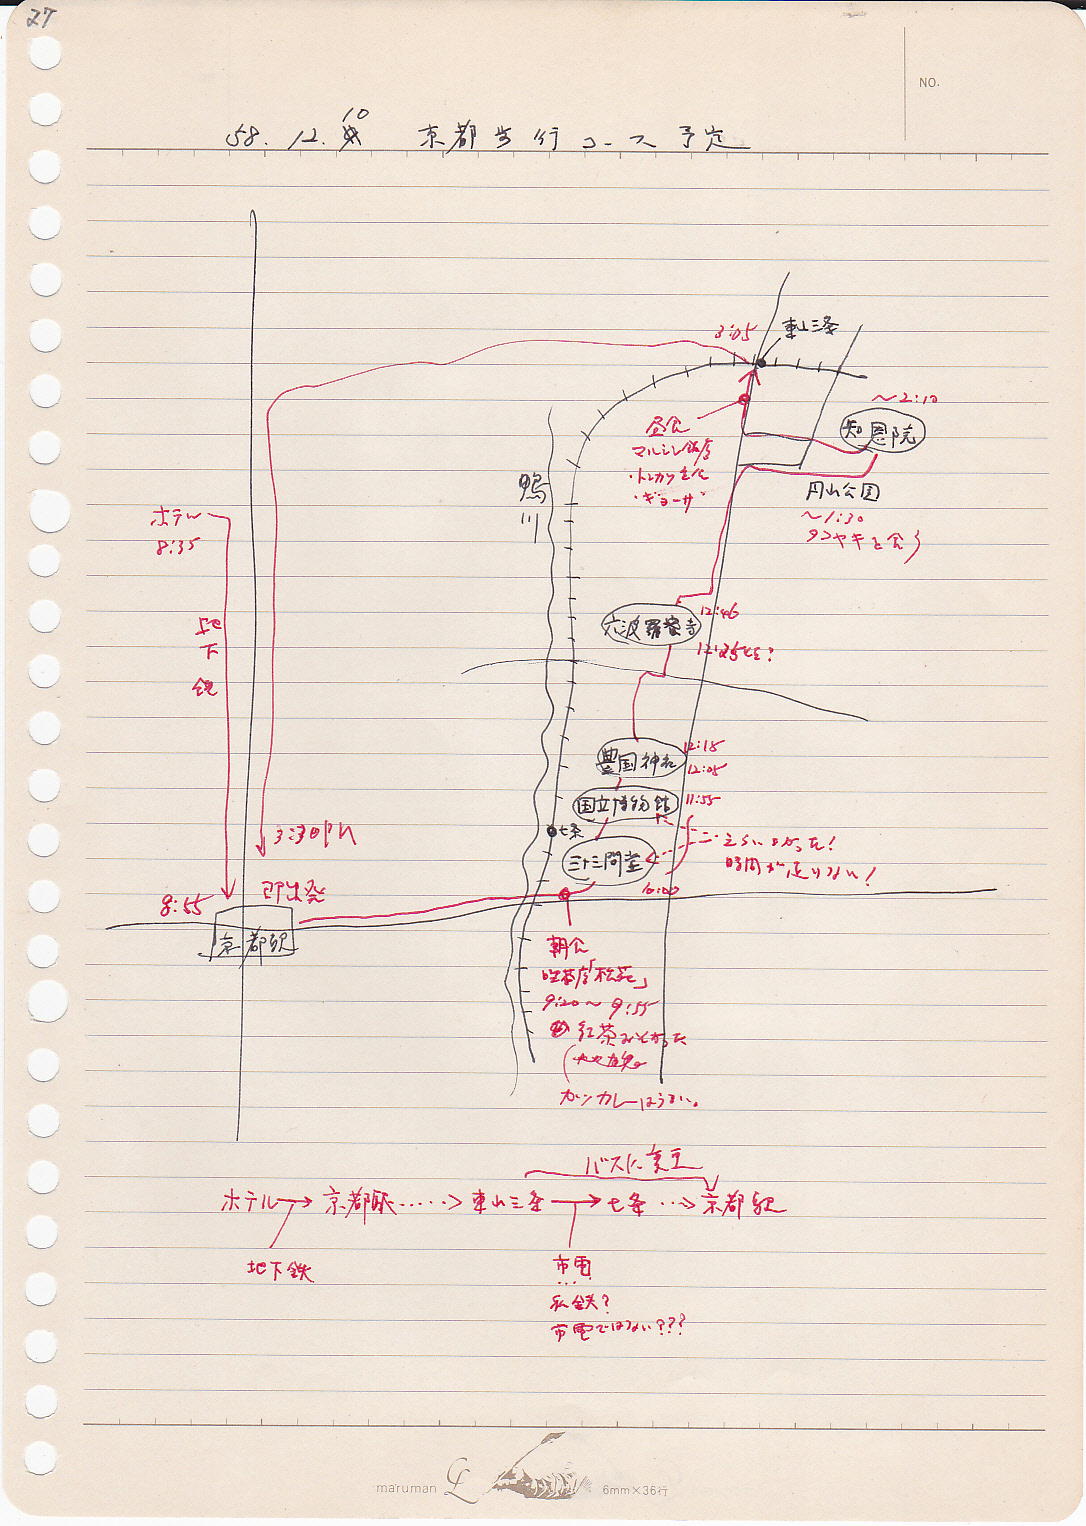 27
NO.
10
58. 12.
京都歩行コース予定
3:05
東山三条
～2:10
知恩院
昼食
マルシン飯店
・トンカツ定食
・ギョーザ
円山公園
～1:30
タコヤキを食う
鴨川
ホテル
8:35
地下鉄
六波羅蜜寺
12:46
豊国神社
12:15
12:05
国立博物館
11:55
七条
三十三間堂
えらいよかった！
時間が足りない！
10:00
3:30
8:55
即出発
京都駅
朝食
喫茶店「松苑」
9:20～9:55
紅茶
カツカレーはうまい。
バスに変更
ホテル→京都駅……>東山三条→七条…>京都駅
地下鉄
市電
私鉄？
市電ではない？？？
maruman
6mm×36行